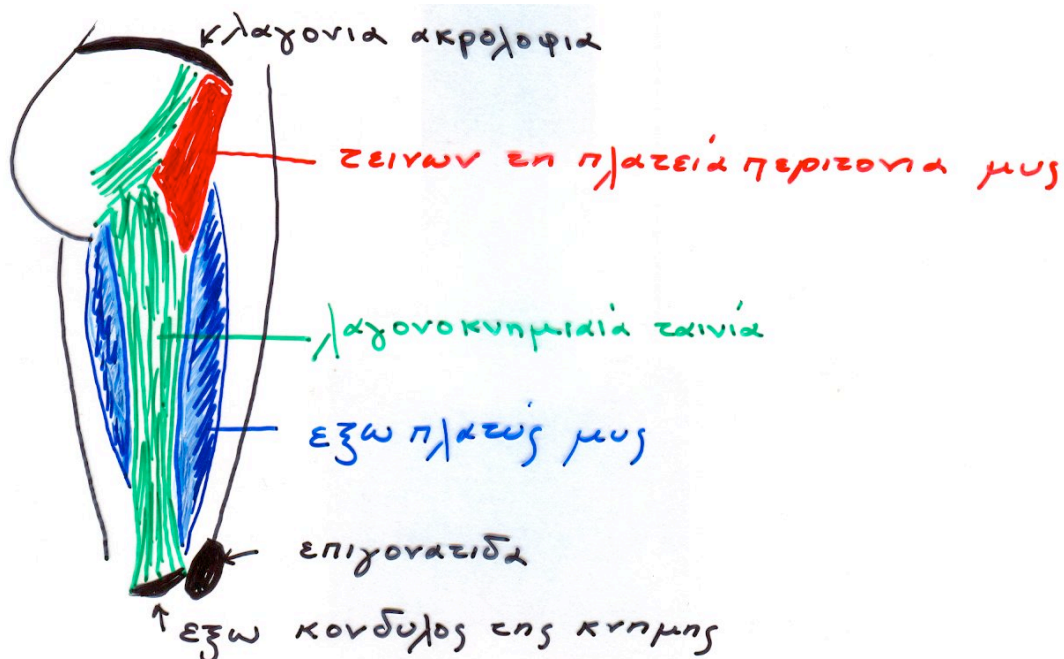 λαγονια ακρολοφια
τεινων τη πλατειά περιτονια μυς
λαγονοκνημιαιά ταινιά
εξω πλατύς μυς
επιγονατιδα
εξω κονδυλος της κνημης